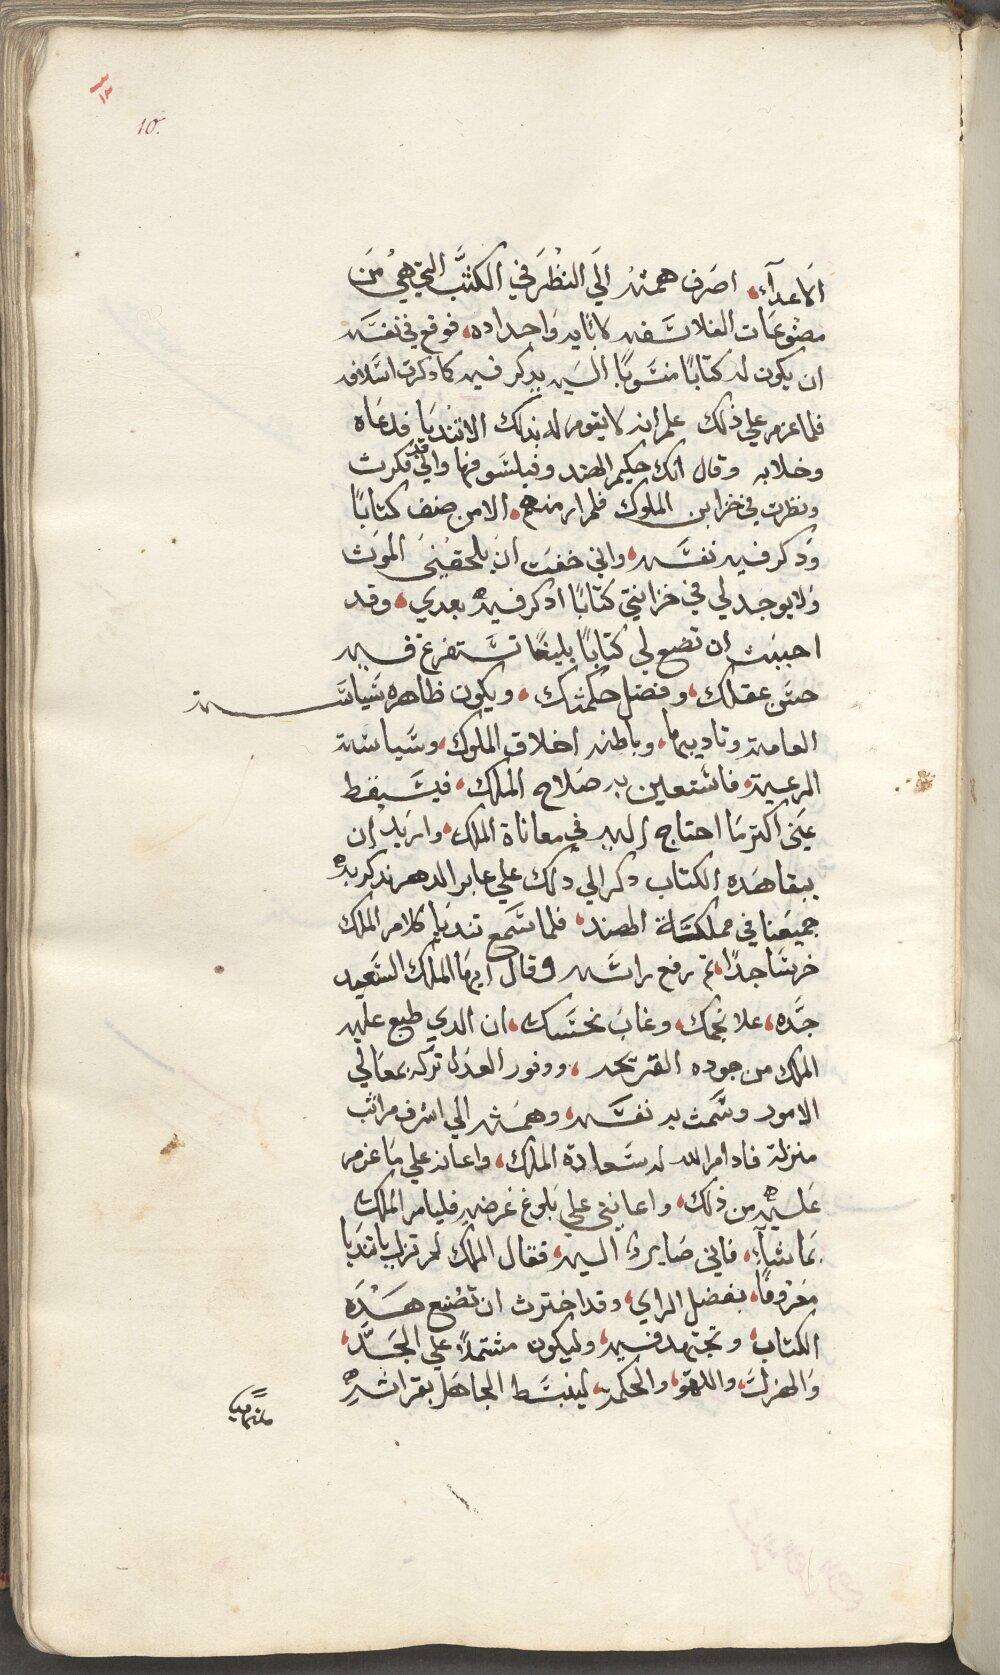 ١٣
10.
الاعدآء، اصرف همته الي النظر في الكتب التي هي من
مصنوعات الفلاسفه لابايه واجداده، فوقع في نفسه
ان يكون له كتابًا منسوبًا اليه يدكر فيه كما دكرت اسلافه
فلما عزم علي ذلك علم انه لا يقوم له بذلك الا تنديا فدعاه
وخلا به وقال انك حكيم الهند وفيلسوفها واني قد فكرت
ونظرت في خزاين الملوك فلم ار منهم، الا من صنف كتابًا
ودكر فيه نفسه، واني خفت ان يلحقني الموت
ولا يوجد لي في خزانتي كتابًا ادكر فيه بعدي، وقد
احببت ان تضع لي كتابًا بليغًا تستفرغ فيه
حسن عقلك، وفضل حكمتك، ويكون ظاهره سياسة
العامة وتاديبها، وباطنه اخلاق الملوك، وسياسة
الرعية، فاستعين به صلاح الملك، فيسقط
عني اكتر ما احتاج اليه في معاناة الملك، واريد ان
يبقا هده الكتاب دكرا لي دلك علي عابر الدهر ندكر به
جميعنا في مملكة الهند، فلما سمع تنديا كلام الملك
خر ساجدًا، تم رفع راسه وقال ايها الملك السعيد
جده، علا نجمك، وغاب نحسك، ان الدي طبع عليه
الملك من جوده القريحه، ووفور العدل تركه بمعالي
الامور وسمت به نفسه، وهمته الي اشرف مراتب
منزلة فادام الله له سعادة الملك، واعانه علي ما عزم
عليه من ذلك، واعانني علي بلوغ غرضه فليامر الملك
بما شآء، فاني صاير اليه، فقال الملك لم تزل يا تنديا
معروفًا، بفضل الراي، وقد اخترت ان تصنع هده
الكتاب، وتجتهد فيه، وليكون مشتملاً علي الجد،
والهزل، واللهو، والحكمة، لينبسط الجاهل بقراته